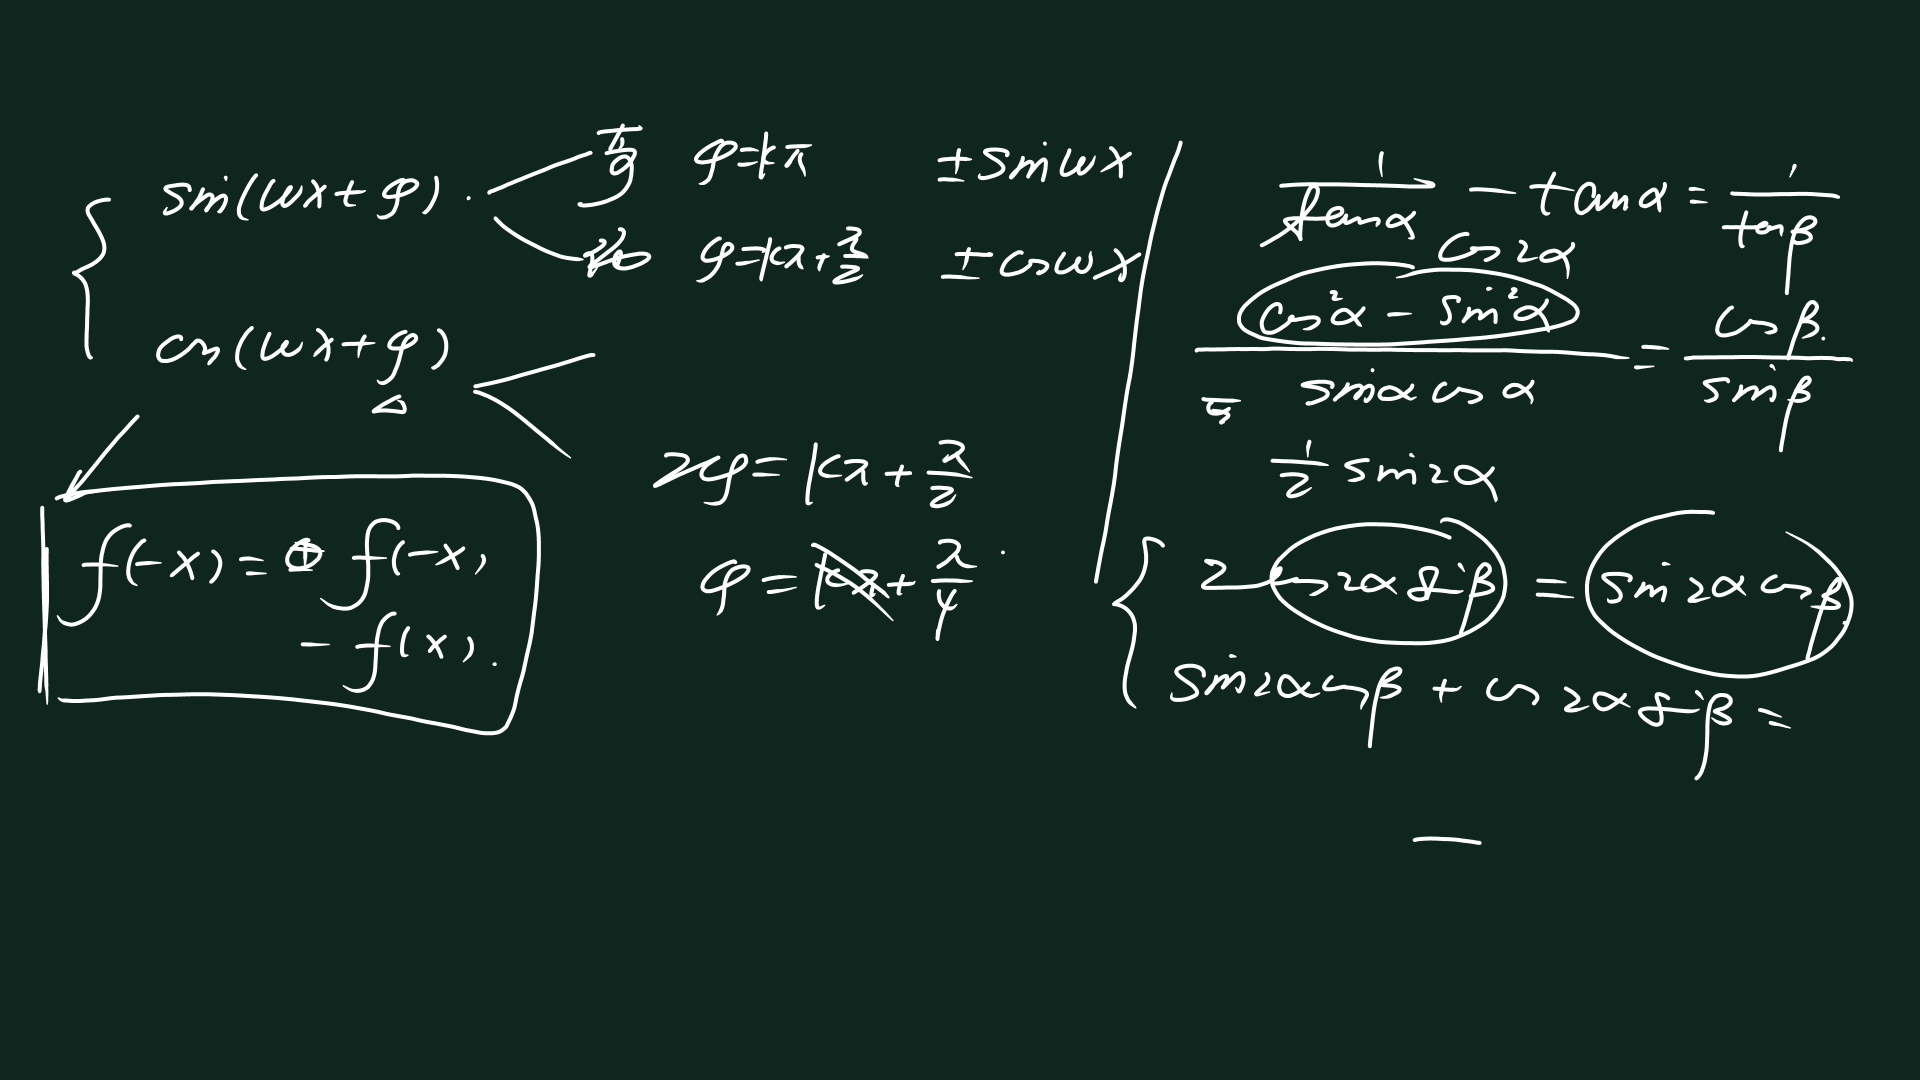 sin(ωx+φ).
奇 φ=kπ ±sinωx
偶 φ=kπ+π/2 ±cosωx
cos(ωx+φ)
f(-x)= f(-x)
-f(x).
2φ=kπ+π/2
φ=kπ+π/4
1/tanα - tanα = 1/tanβ
cos2α
(cos²α - sin²α)/(sinα cosα) = cosβ/sinβ
1/2 sin2α
2cos2α sinβ = sin2α cosβ
sin2αcosβ + cos2α sinβ =